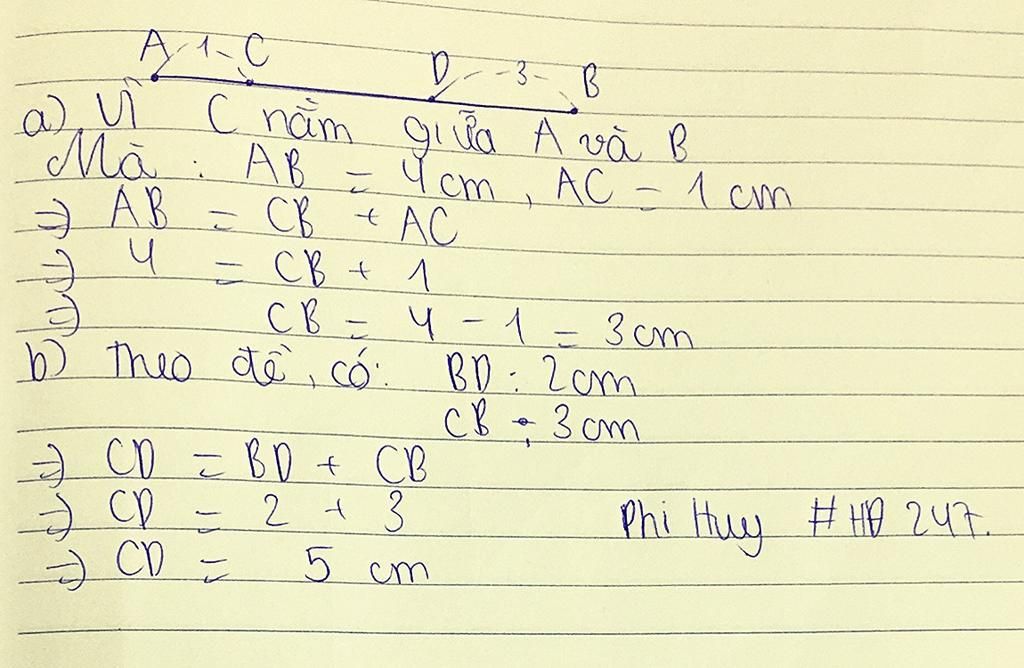 A -1- C D -3- B
a) Vì C nằm giữa A và B
Mà : AB = 4cm, AC = 1cm
=> AB = CB + AC
=> 4 = CB + 1
=> CB = 4 - 1 = 3cm
b) Theo đề, có: BD : 2cm
CB : 3cm
=> CD = BD + CB
=> CD = 2 + 3
Phi Huy #HĐ 247.
=> CD = 5 cm